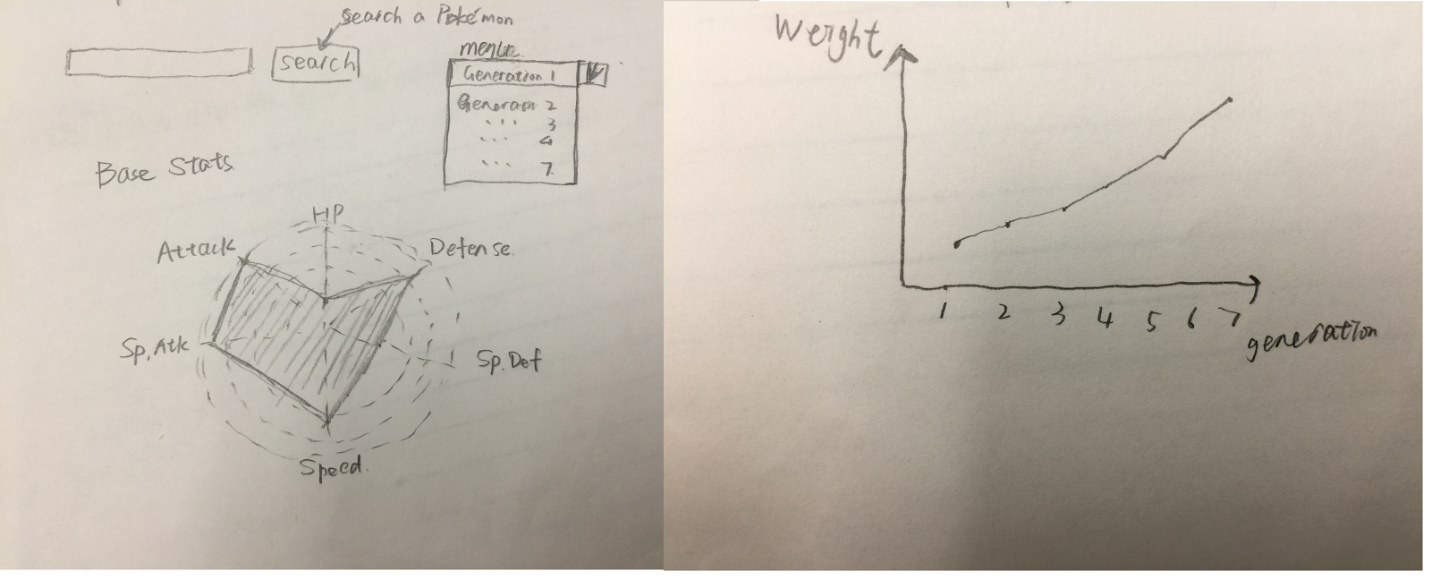 search a Pokémon
search
menu
Generation 1
Generaon 2
... 3
... 4
... 7.
Base Stats
HP
Attack
Defense.
Sp.Atk
Sp.Def
Speed.
Weight
1 2 3 4 5 6 7
generation